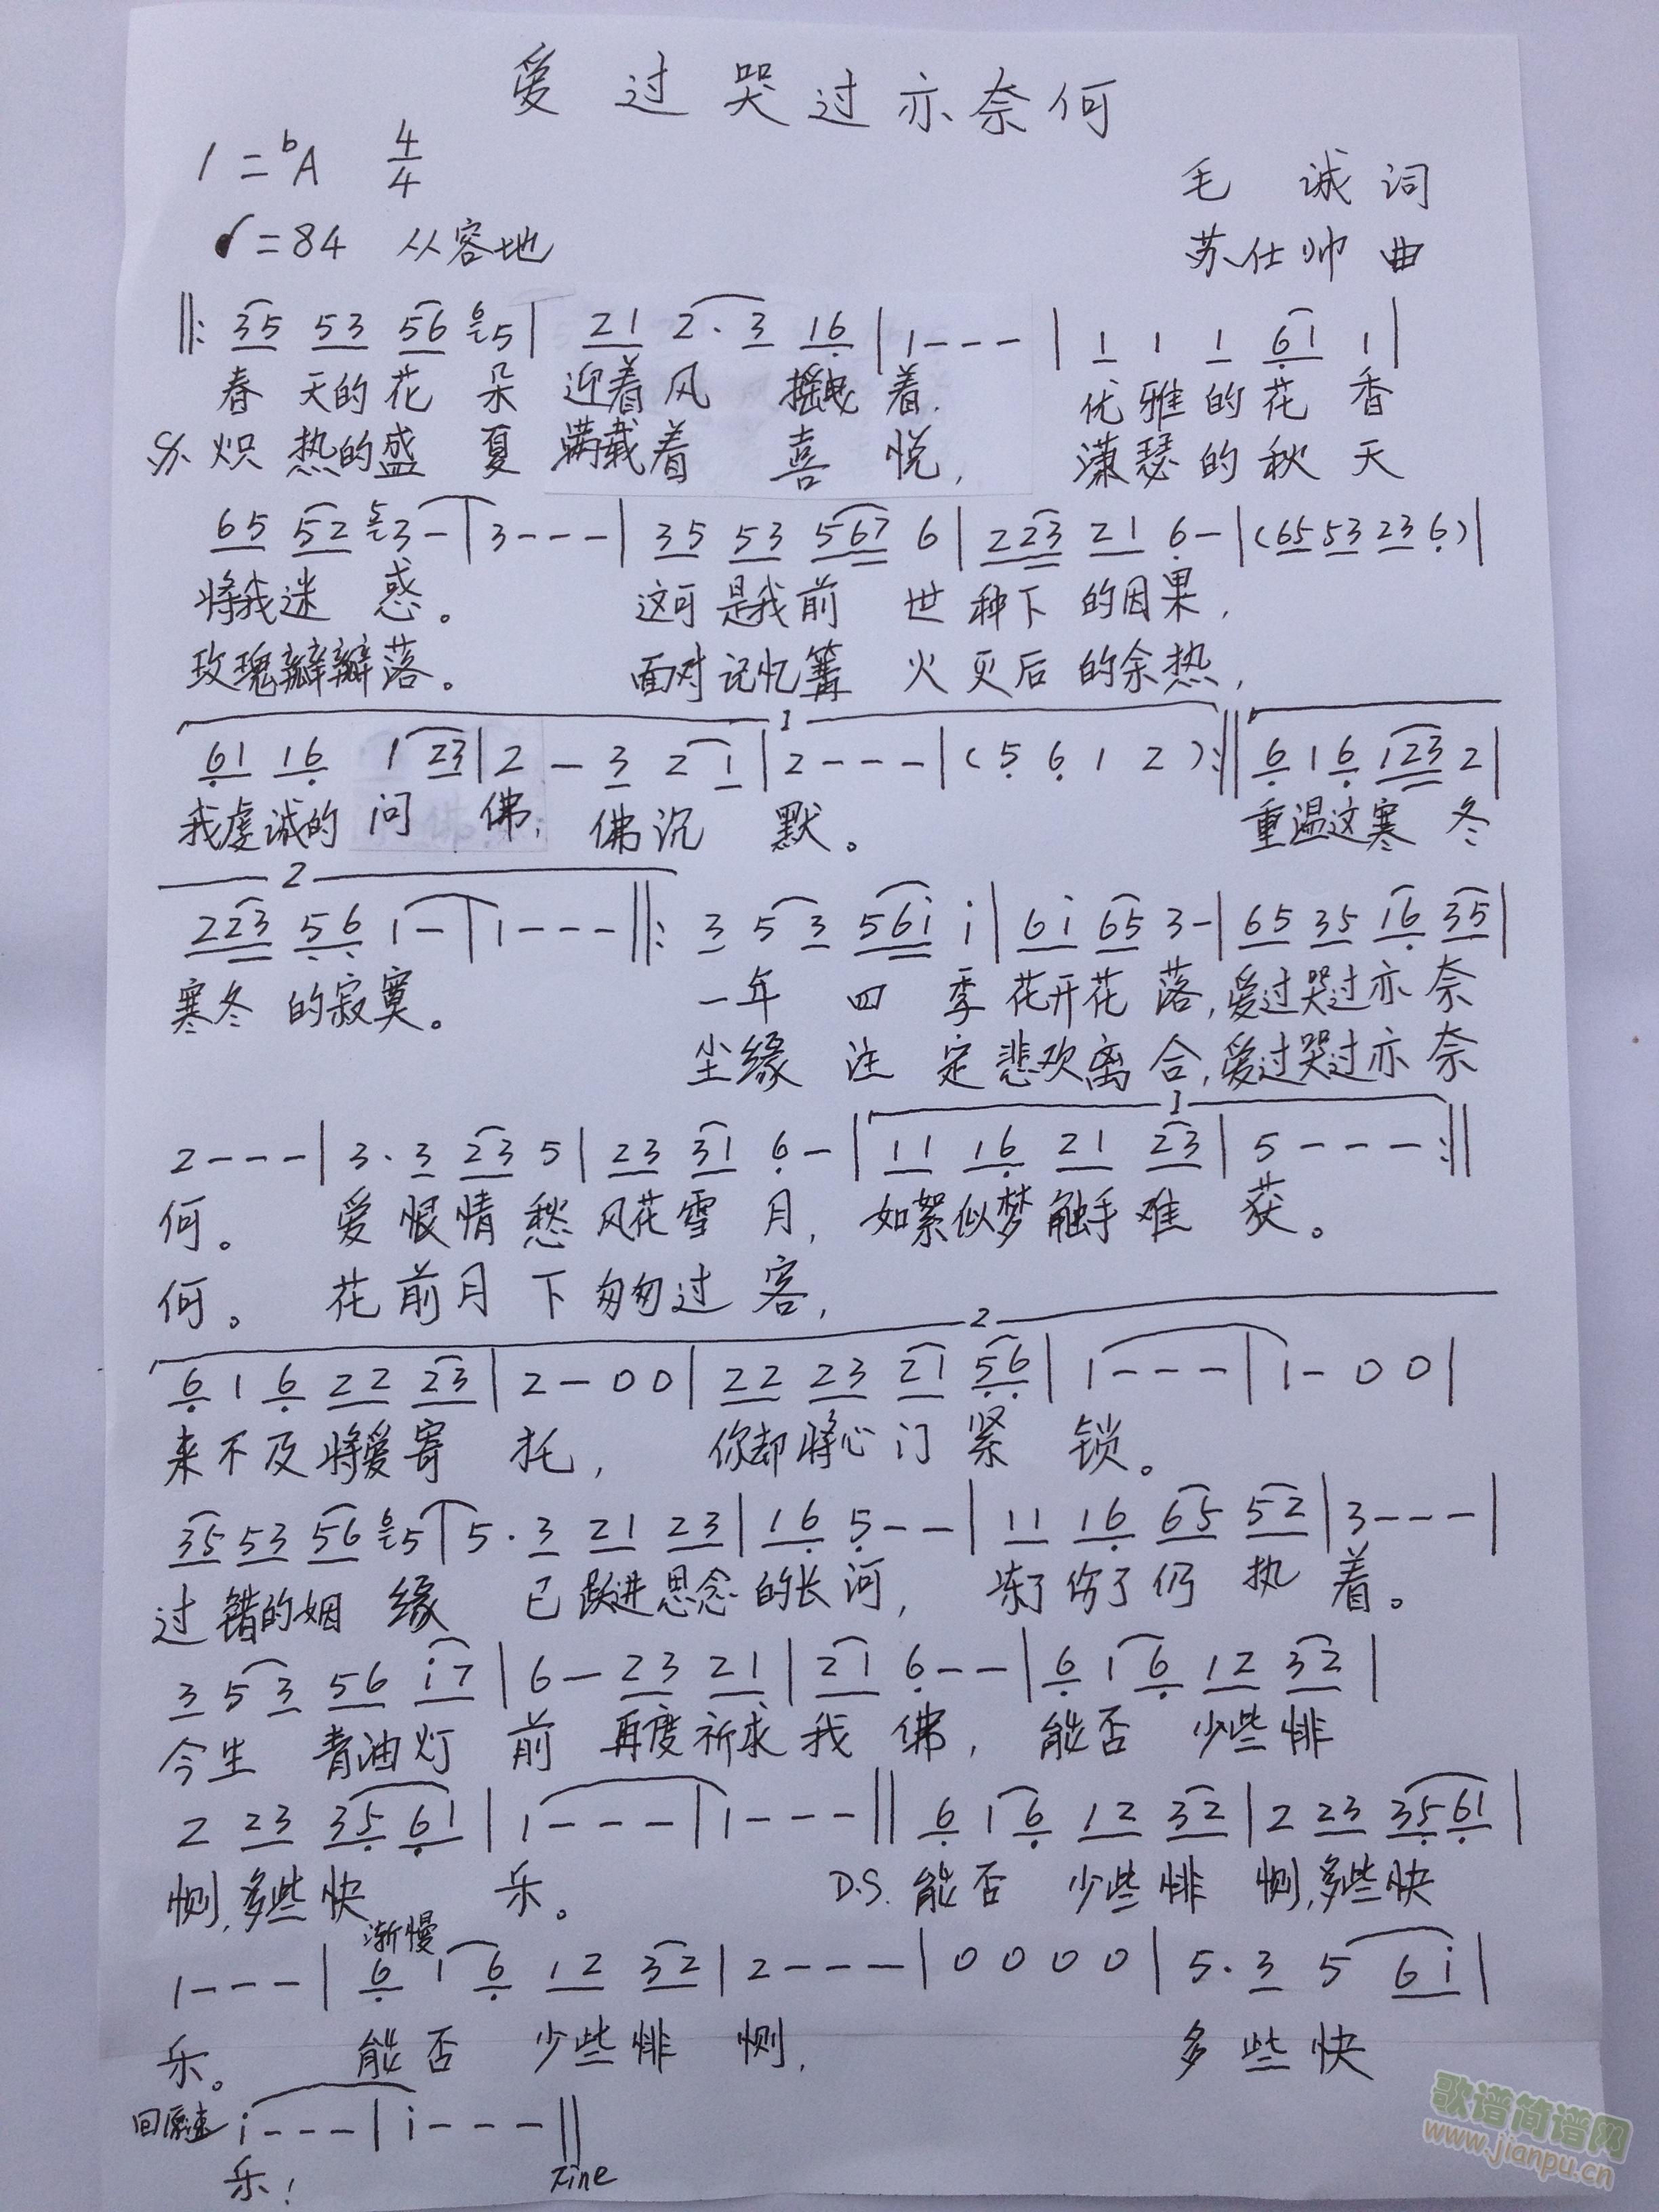 爱过哭过亦奈何
1=bA 4/4
毛诚词
♩=84 从容地
苏仕帅曲
‖: 35 53 56 65 | 21 2· 3 16 | 1 - - - | 1 1 1 61 1 |
春天的花朵迎着风摇曳着. 优雅的花香
炽热的盛夏满载着喜悦, 潇瑟的秋天
65 52 53 - | 3 - - - | 35 53 567 6 | 223 21 6 - | (65 53 23 6) |
将我迷惑。 这可是我前世种下的因果,
玫瑰瓣瓣落。 面对记忆篝火灭后的余热,
1
61 16 1 23 | 2 - 3 2 1 | 2 - - - | (5 6 1 2) :‖ 6 1 6 123 2 |
我虔诚的问佛, 佛沉默。 重温这寒冬
2
223 56 1 - | 1 - - - ‖: 3 5 3 561 i | 6i 65 3 - | 65 35 16 35 |
寒冬的寂寞。 一年四季花开花落, 爱过哭过亦奈
尘缘注定悲欢离合, 爱过哭过亦奈
1
2 - - - | 3· 3 23 5 | 23 31 6 - | 11 16 21 23 | 5 - - - :‖
何。 爱恨情愁风花雪月, 如絮似梦触手难获。
何。 花前月下匆匆过客,
2
6 1 6 22 23 | 2 - 0 0 | 22 23 21 56 | 1 - - - | 1 - 0 0 |
来不及将爱寄托, 你却将心门紧锁。
35 53 56 65 | 5· 3 21 23 | 16 5 - - | 11 16 65 52 | 3 - - - |
过错的姻缘 已跃进思念的长河, 冻了伤了仍执着。
3 5 3 56 i7 | 6 - 23 21 | 21 6 - - | 6 1 6 12 32 |
今生青油灯前再度祈求我佛, 能否少些悱
2 23 35 61 | 1 - - - | 1 - - - ‖ 6 1 6 12 32 | 2 23 35 61 |
恻, 多些快乐。 D.S. 能否少些悱恻, 多些快
渐慢
1 - - - | 6 1 6 12 32 | 2 - - - | 0 0 0 0 | 5· 3 5 6i |
乐。 能否少些悱恻, 多些快
回原速 i - - - | i - - - ‖
乐! Fine
歌谱简谱网
www.jianpu.cn